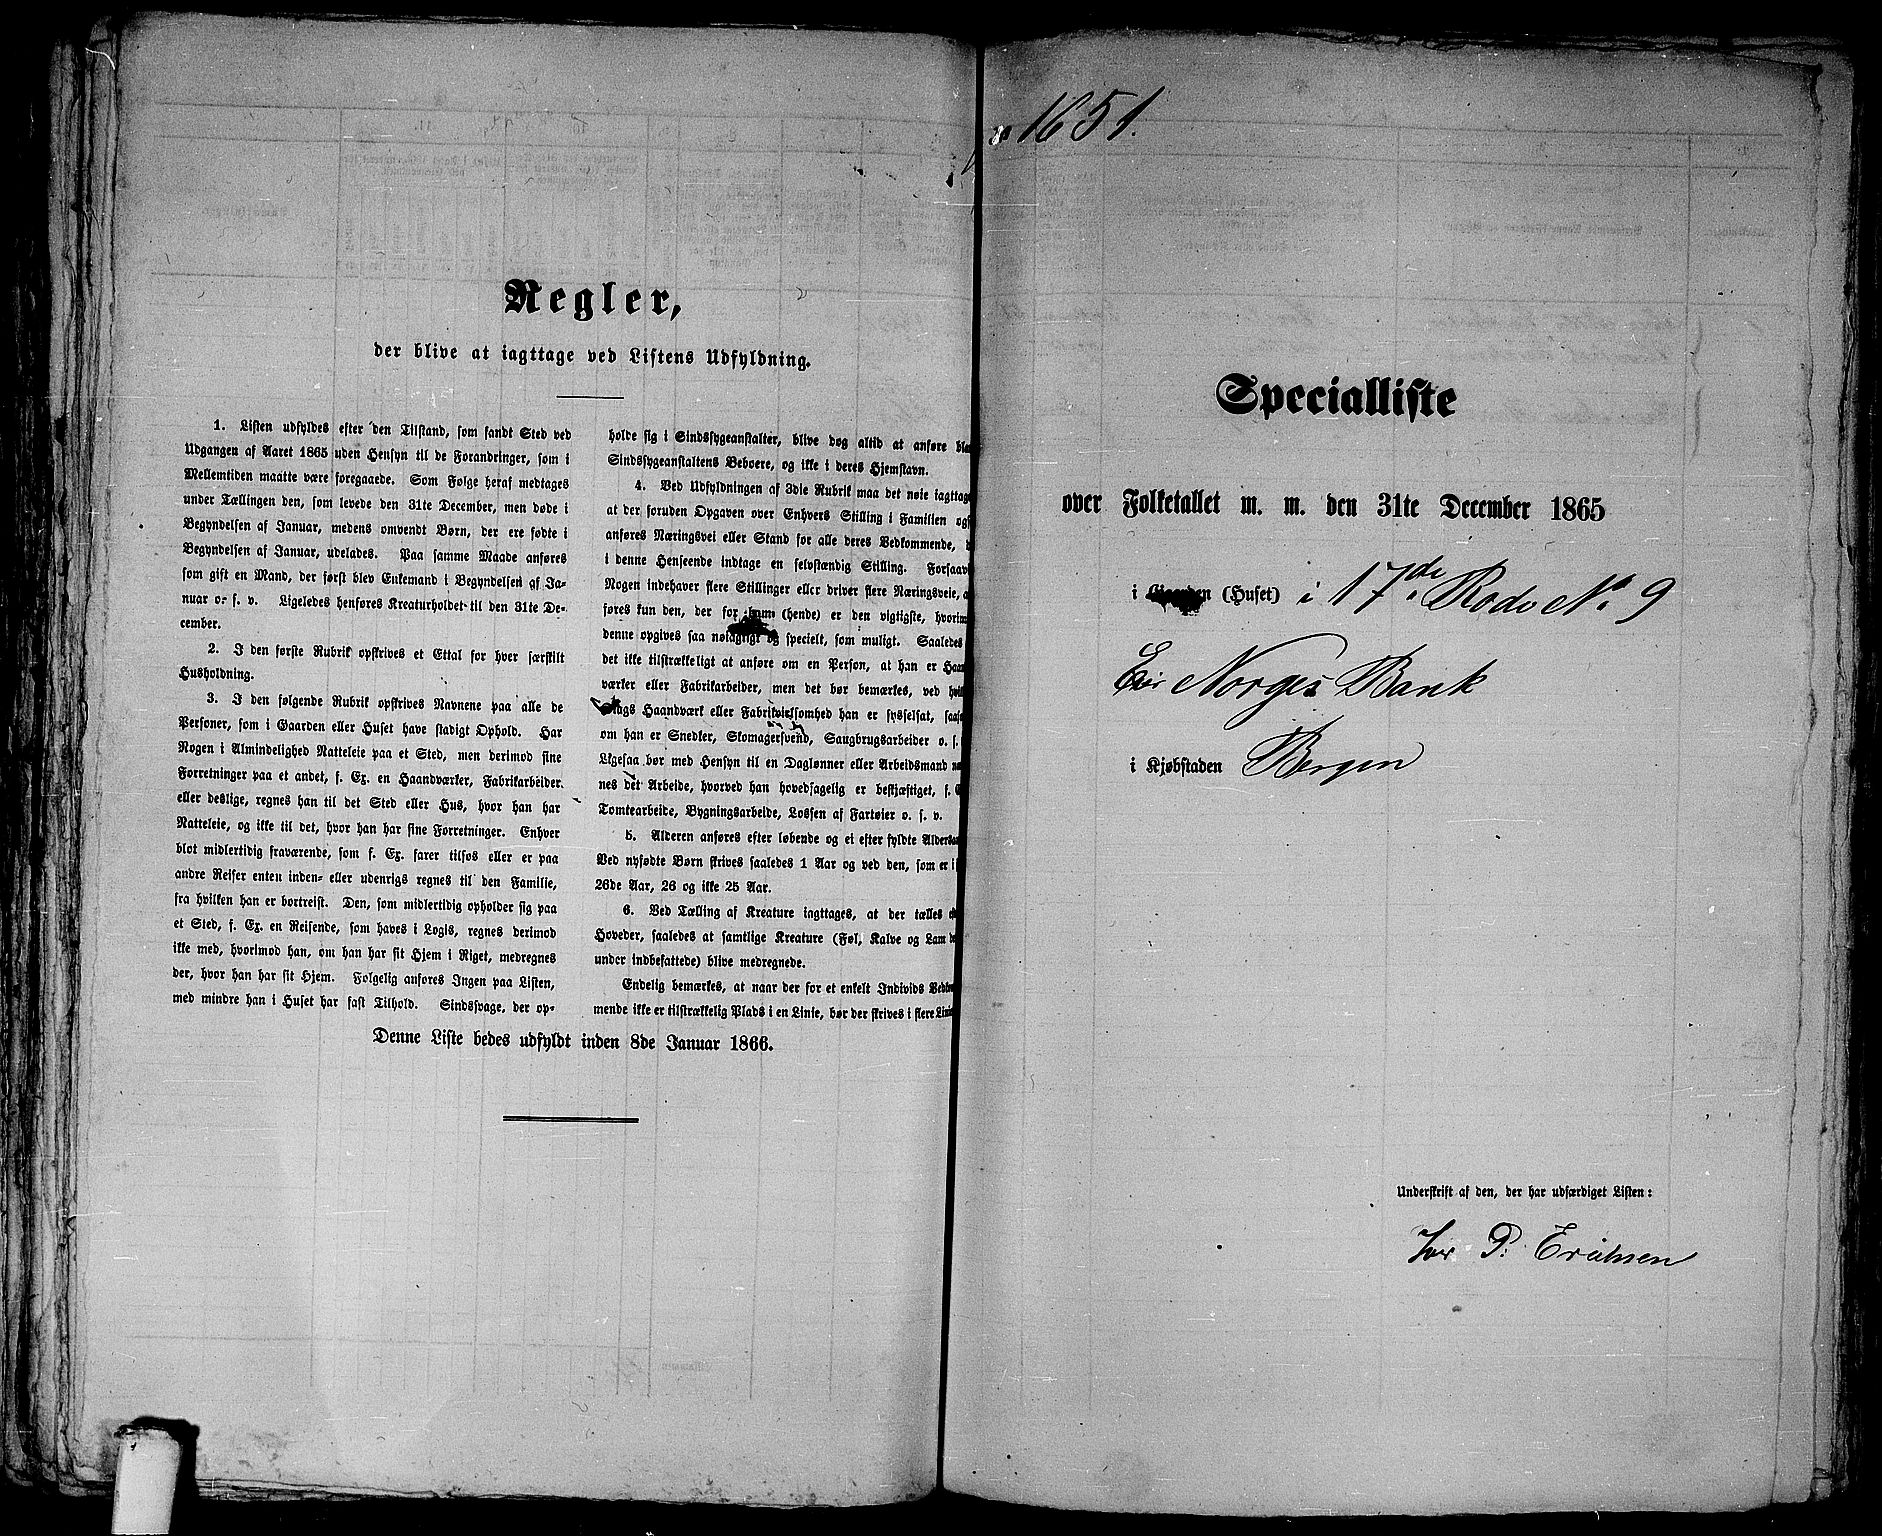 Regler,
der blive at iagttage ved Listens Udfyldning.
1. Listen udfyldes efter den Tilstand, som fandt Sted ved
Udgangen af Aaret 1865 uden Hensyn til de Forandringer, som i
Mellemtiden maatte være foregaaede. Som Følge heraf medtages
under Tællingen den, som levede den 31te December, men døde i
Begyndelsen af Januar, medens omvendt Børn, der ere fødte i
Begyndelsen af Januar, udelades. Paa samme Maade anføres
som gift en Mand, der først blev Enkemand i Begyndelsen af Ja-
nuar o. s. v. Ligeledes henføres Kreaturholdet til den 31te De-
cember.
2. I den første Rubrik opskrives et Ettal for hver særskilt
Husholdning.
3. I den følgende Rubrik opskrives Navnene paa alle de
Personer, som i Gaarden eller Huset have stadigt Ophold. Har
Nogen i Almindelighed Natteleie paa et Sted, men derimod sine
Forretninger paa et andet, f. Ex. en Haandværker, Fabrikarbeider
eller deslige, regnes han til det Sted eller Hus, hvor han har
Natteleie, og ikke til det, hvor han har sine Forretninger. Enhver
blot midlertidig fraværende, som f. Ex. farer tilsøs eller er paa
andre Reiser enten inden- eller udenrigs regnes til den Familie,
fra hvilken han er bortreist. Den, som midlertidig opholder sig paa
et Sted, f. Ex. en Reisende, som haves i Logis, regnes derimod
ikke med, hvorimod han, om han har sit Hjem i Riget, medregnes
der, hvor han har sit Hjem. Følgelig anføres Ingen paa Listen,
med mindre han i Huset har fast Tilhold. Sindssvage, der op-
holde sig i Sindssygeanstalter, blive dog altid at anføre bla
Sindssygeanstaltens Beboere, og ikke i deres Hjemstavn.
4. Ved Udfyldningen af 3die Rubrik maa det nøie iagttag
at der foruden Opgaven over Enhvers Stilling i Familien ogs
anføres Næringsvei eller Stand for alle deres Vedkommende,
i denne Henseende indtage en selvstændig Stilling. Forsaav
Nogen indehaver flere Stillinger eller driver flere Næringsveie, a
føres kun den, der for ham (hende) er den vigtigste, hvorim
denne opgives saa nøiagtigt og specielt, som muligt. Saaledes
det ikke tilstrækkeligt at anføre om en Person, at han er Haan
værker eller Fabrikarbeider, men det bør bemærkes, ved hvil
Slags Haandværk eller Fabrikvirksomhed han er sysselsat, saas
om han er Snedker, Skomagersvend, Saugbrugsarbeider o. s.
Ligesaa bør med Hensyn til en Daglønner eller Arbeidsmand næ
nes det Arbeide, hvorved han hovedsagelig er beskjæftiget, f. E
Tomtearbeide, Bygningsarbeide, Lossen af Fartøier o. s. v.
5. Alderen anføres efter løbende og ei efter fyldte Aldersaar
Ved nyfødte Børn skrives saaledes 1 Aar og ved den, som er i
26de Aar, 26 og ikke 25 Aar.
6. Ved Tælling af Kreature iagttages, at der tælles e
Hoveder, saaledes at samtlige Kreature (Føl, Kalve og Lam de
under indbefattede) blive medregnede.
Endelig bemærkes, at naar der for et enkelt Individs Vedkom
mende ikke er tilstrækkelig Plads i en Linie, bør der skrives i flere Linie
Denne Liste bedes udfyldt inden 8de Januar 1866.
1651.
Specialliste
over Folketallet m. m. den 31te December 1865
i Gaarden (Huset) i 17de Rode No. 9
Eier Norges Bank
i Kjøbstaden Bergen
Underskrift af den, der har udfærdiget Listen:
P. Erichsen